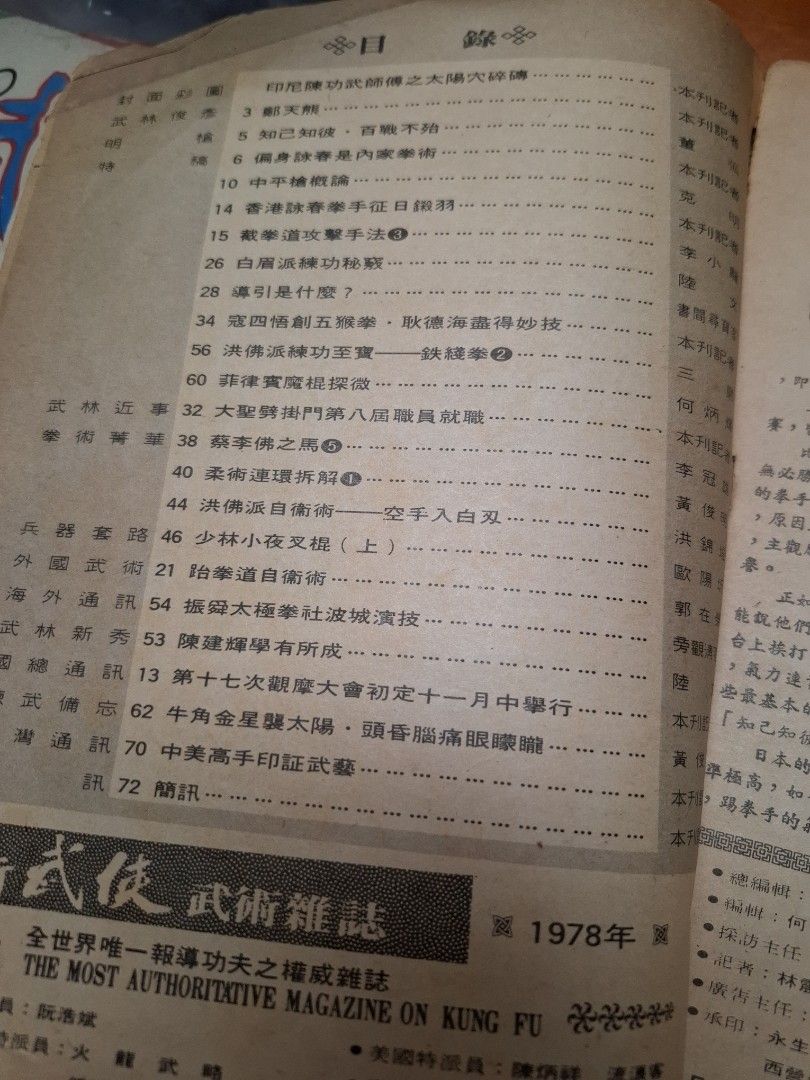 目 錄
封面彩圖 印尼陳功武師傅之太陽穴碎磚………… 本刊記者
武林俊彥 3 鄭天熊………… 本刊記者
明 槍 5 知己知彼・百戰不殆………… 董
特 稿 6 偏身詠春是內家拳術………… 本刊記者
10 中平槍概論………… 克 明
14 香港詠春拳手征日鎩羽………… 本刊記者
15 截拳道攻擊手法❸………… 李小龍
26 白眉派練功秘竅………… 陸 文
28 導引是什麼？………… 書間尋寶
34 寇四悟創五猴拳・耿德海盡得妙技………… 本刊記者
56 洪佛派練功至寶——鉄綫拳❷………… 三
60 菲律賓魔棍探微………… 何炳
武林近事 32 大聖劈掛門第八屆職員就職………… 本刊記者
拳術菁華 38 蔡李佛之馬❺………… 李冠
40 柔術連環拆解❶………… 黃俊
44 洪佛派自衞術——空手入白刃………… 洪錦
兵器套路 46 少林小夜叉棍（上）………… 歐陽
外國武術 21 跆拳道自衞術………… 郭在
海外通訊 54 振舜太極拳社波城演技………… 旁觀
武林新秀 53 陳建輝學有所成………… 陸
國總通訊 13 第十七次觀摩大會初定十一月中舉行………… 本刊
武備忘 62 牛角金星襲太陽・頭昏腦痛眼矇矓………… 黃俊
灣通訊 70 中美高手印証武藝………… 本刊
訊 72 簡訊………… 本刊
武俠 武術雜誌
1978年
全世界唯一報導功夫之權威雜誌
THE MOST AUTHORITATIVE MAGAZINE ON KUNG FU
員：阮浩斌
特派員：火 龍 武 略
•美國特派員：陳炳祥
，即
賽，
無必勝
的拳手
，原因
，主觀
譽。
正如
能說他們
台上挨打
，氣力達
些最基本的
「知己知彼
日本的
準極高，如
，踢拳手的
•總編輯：
•編輯：何
•採訪主任
•記者：林
•廣告主任：
•承印：永生
西營